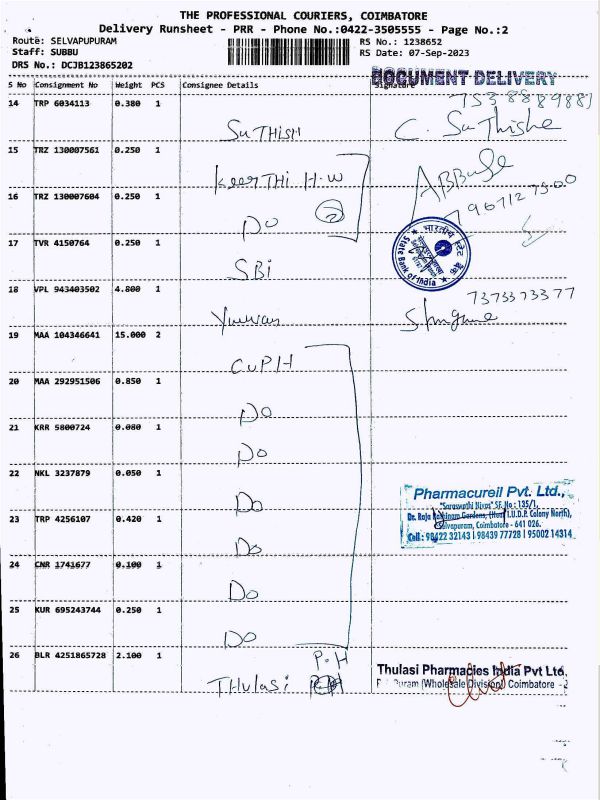 THE PROFESSIONAL COURIERS, COIMBATORE
Delivery Runsheet - PRR - Phone No.:0422-3505555 - Page No.:2
Route: SELVAPUPURAM
RS No.: 1238652
Staff: SUBBU
RS Date: 07-Sep-2023
DRS No.: DCJB123865202
DOCUMENT DELIVERY
S No Consignment No Weight PCS Consignee Details Signature
14 TRP 6034113 0.380 1
SuTHisH
C. SuThishe
15 TRZ 130007561 0.250 1
KeerTHi H.W
16 TRZ 130007604 0.250 1
Do ②
17 TVR 4150764 0.250 1
SBi
भारतीय स्टेट बैंक
State Bank of India
18 VPL 943403502 4.800 1
7373373377
19 MAA 104346641 15.000 2
CuPH
20 MAA 292951506 0.850 1
Do
21 KRR 5800724 0.080 1
Do
22 NKL 3237879 0.050 1
Do
Pharmacureil Pvt. Ltd.,
"Saraswathi Nivas" SF. No : 135/1,
Dr. Raja Gardens, I.U.D.P. Colony North),
Selvapuram, Coimbatore - 641 026.
Cell : 98422 32143 | 98439 77728 | 95002 14314
23 TRP 4256107 0.420 1
Do
24 CNR 1741677 0.100 1
Do
25 KUR 695243744 0.250 1
Do
26 BLR 4251865728 2.100 1
P.H
THulasi
Thulasi Pharmacies India Pvt Ltd.
(Wholesale Division) Coimbatore - 2